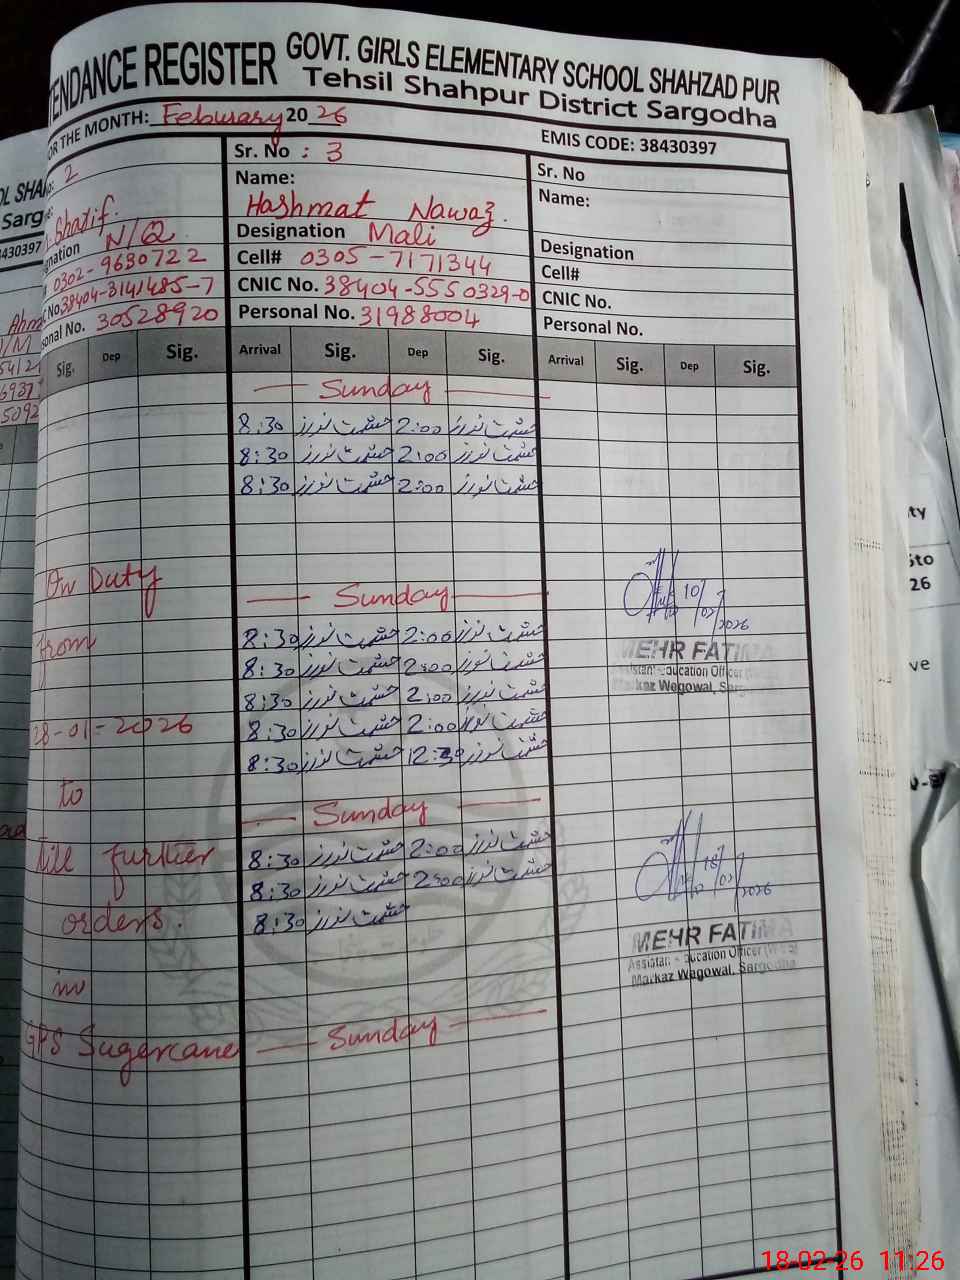 TENDANCE REGISTER GOVT. GIRLS ELEMENTARY SCHOOL SHAHZAD PUR
Tehsil Shahpur District Sargodha
OR THE MONTH: Feburary 2026 EMIS CODE: 38430397
2
Sharif.
N/Q
0302-9630722
38404-3141485-7
onal No. 30528920
Sig. Dep Sig.
On Duty
from
28-01-2026
to
till further
orders.
in
GPS Sugercane
Sr. No : 3
Name:
Hashmat Nawaz.
Designation Mali
Cell# 0305-7171344
CNIC No. 38404-5550329-0
Personal No. 31988004
Arrival Sig. Dep Sig.
Sunday
8:30 حشمت نواز 2:00 حشمت نواز
8:30 حشمت نواز 2:00 حشمت نواز
8:30 حشمت نواز 2:00 حشمت نواز
Sunday
8:30 حشمت نواز 2:00 حشمت نواز
8:30 حشمت نواز 2:00 حشمت نواز
8:30 حشمت نواز 2:00 حشمت نواز
8:30 حشمت نواز 2:00 حشمت نواز
8:30 حشمت نواز 12:30 حشمت نواز
Sunday
8:30 حشمت نواز 2:00 حشمت نواز
8:30 حشمت نواز 2:00 حشمت نواز
8:30 حشمت نواز
Sunday
Sr. No
Name:
Designation
Cell#
CNIC No.
Personal No.
Arrival Sig. Dep Sig.
10/02/2026
MEHR FATIMA
Assistant Education Officer
Markaz Wegowal, Sargodha
18/02/2026
MEHR FATIMA
Assistant Education Officer
Markaz Wegowal, Sargodha
18-02-26 11:26